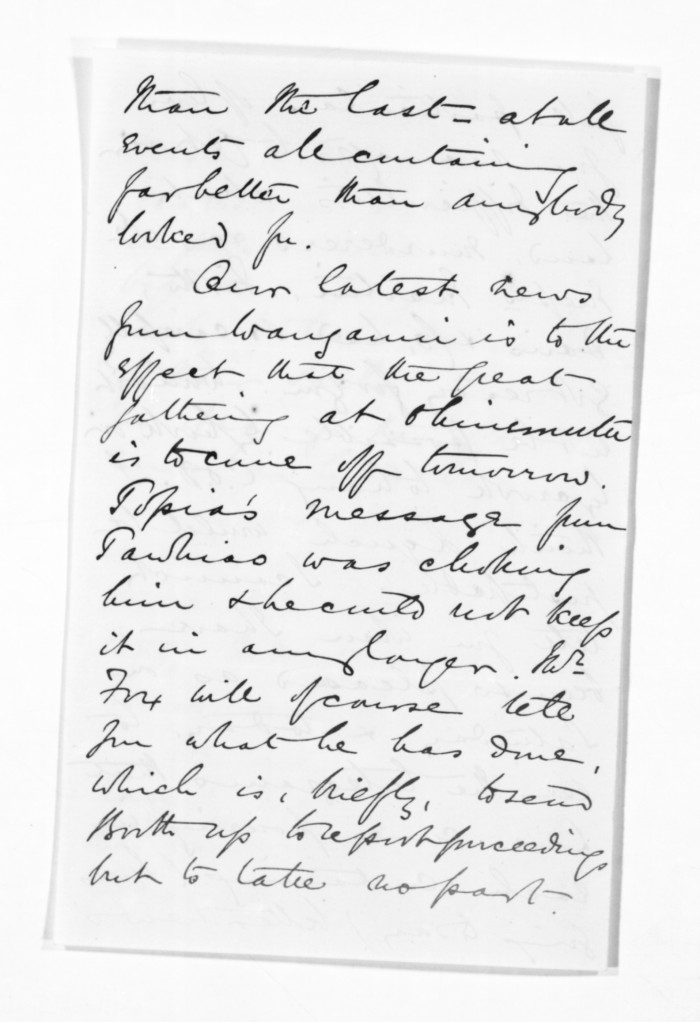 than the last – at all
events all curtaining
far better than anybody
looked for.
Our latest news
from Wanganui is to the
effect that the great
gathering at Ohinemutu
is to come off tomorrow.
Topia's message from
Tawhiao was choking
him & he could not keep
it in any longer. Mr
Fox will of course tell
you what he has done,
which is, briefly, to send
Booth up to report proceedings
but to take no part